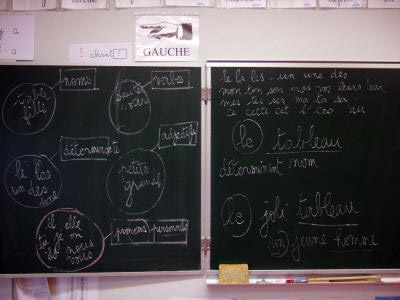 y a
a
! chant?
GAUCHE
noms
table
fille
verbes
déterminants
le les
un des
une
adjectifs
petite
grande
il elle
tu je on
ils nous
vous
pronoms personnels
le la les - un une des
mon ton son mes nos leurs leur
mes tes ses ma ta sa
ce cette cet l' ces au
le tableau
déterminant nom
le joli tableau
un jeune homme